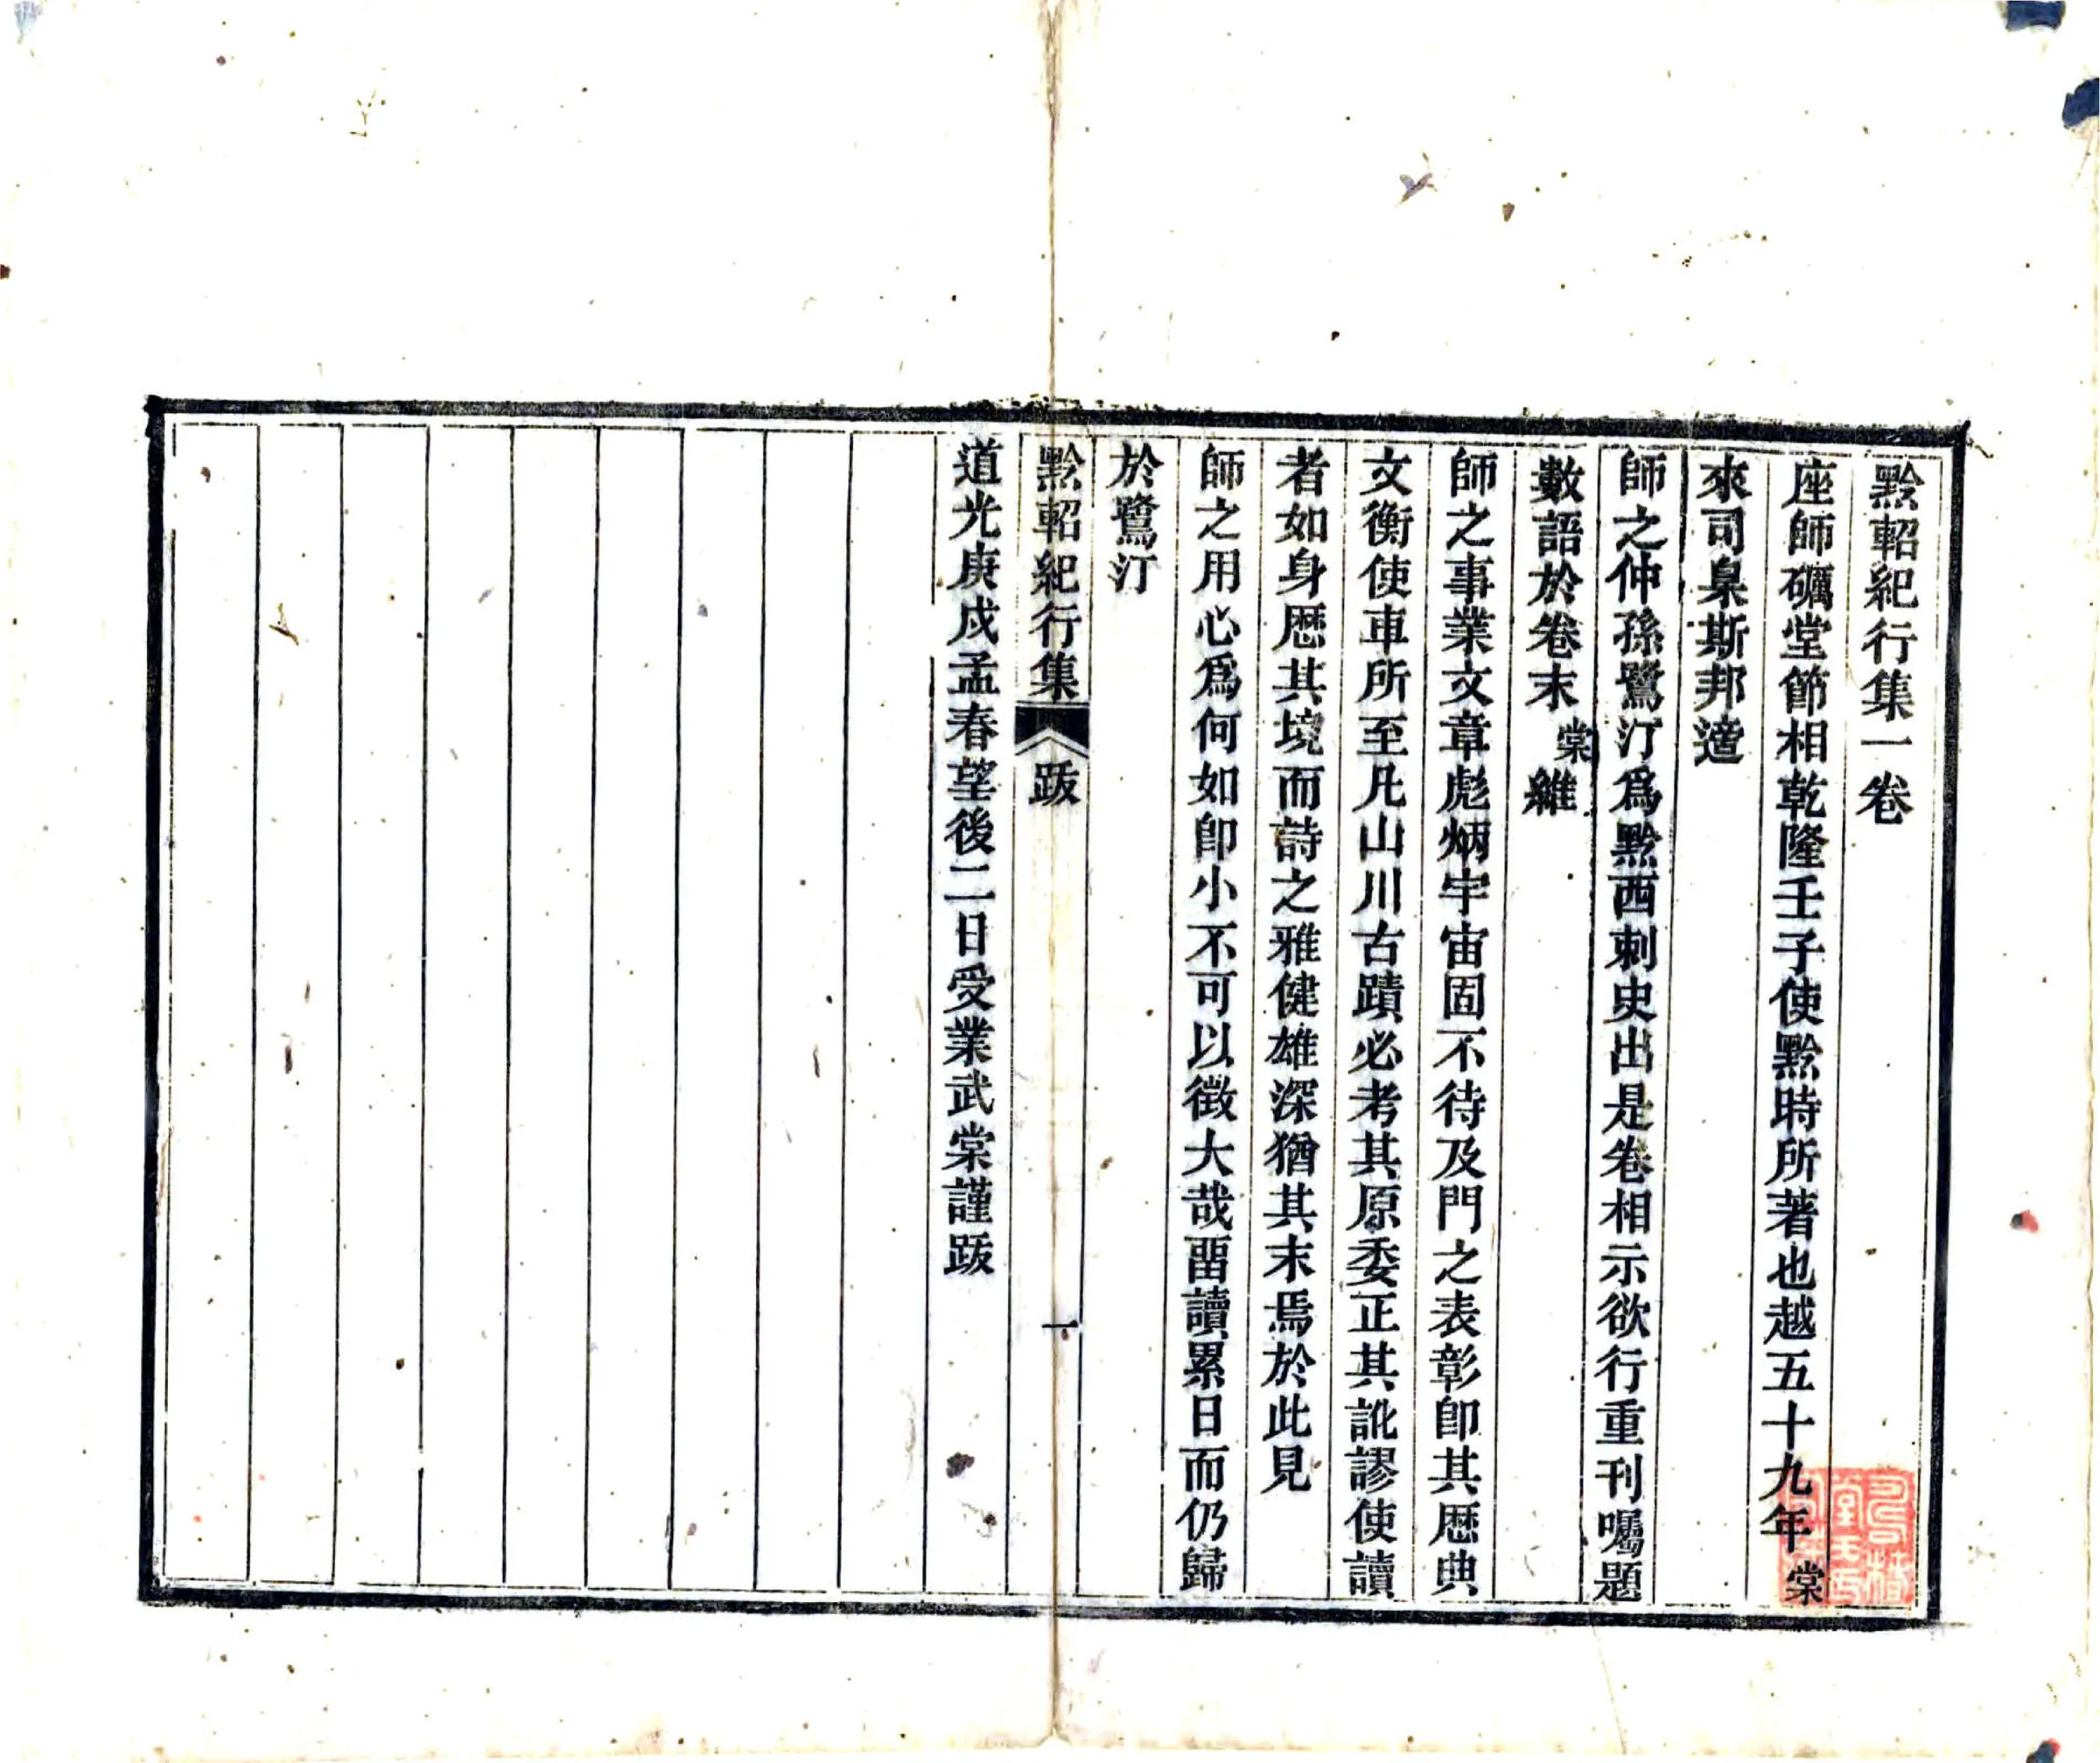 黔軺紀行集一卷
座師礪堂節相乾隆壬子使黔時所著也越五十九年棠
來司臬斯邦適
師之仲孫鷺汀爲黔西刺史出是卷相示欲行重刊囑題
數語於卷末棠維
師之事業文章彪炳宇宙固不待及門之表彰卽其歷典
文衡使車所至凡山川古蹟必考其原委正其訛謬使讀
者如身歷其境而詩之雅健雄深猶其末焉於此見
師之用心爲何如卽小不可以徵大哉畱讀累日而仍歸
於鷺汀
黔軺紀行集 跋 一
道光庚戌孟春望後二日受業武棠謹跋